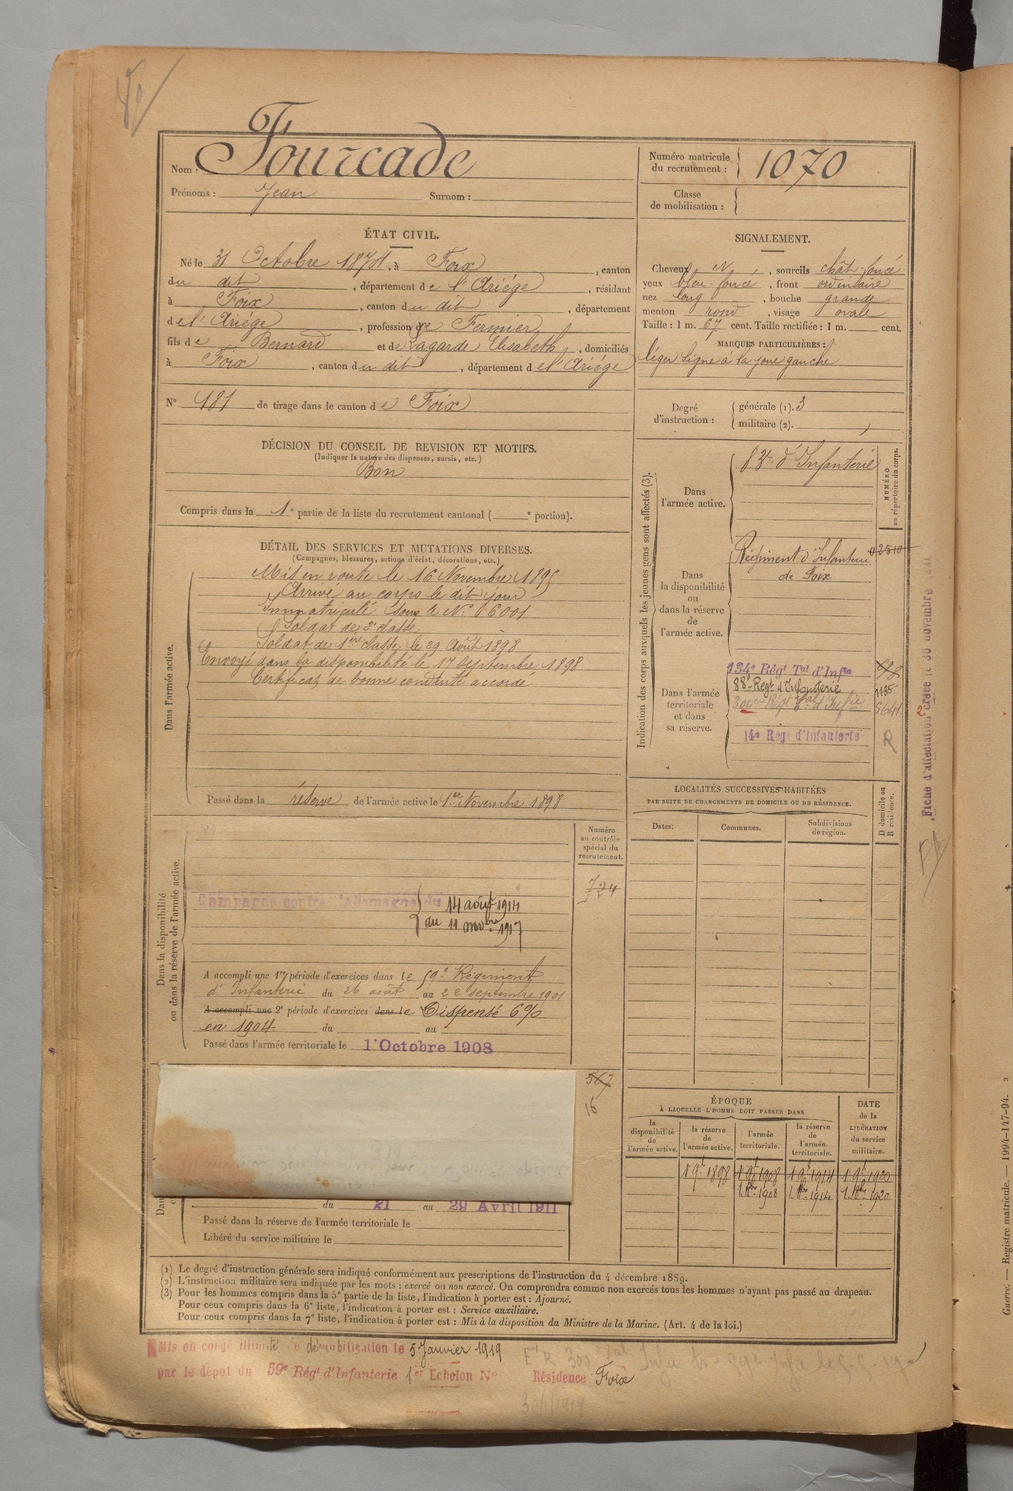 Nom : Fourcade
Prénoms : Jean Surnom :
Numéro matricule du recrutement : 1070
Classe de mobilisation :
ÉTAT CIVIL.
Né le 31 Octobre 1874, à Foix, canton
du dit, département de l'Ariège, résidant
à Foix, canton du dit, département
de l'Ariège, profession de Fermier,
fils de Bernard et de Lagarde Elisabeth, domiciliés
à Foix, canton du dit, département de l'Ariège
N° 181 de tirage dans le canton de Foix
SIGNALEMENT.
Cheveux N, sourcils chât foncé
yeux bleu-foncé, front ordinaire
nez long, bouche grande
menton rond, visage ovale
Taille : 1 m. 67 cent. Taille rectifiée : 1 m. cent.
MARQUES PARTICULIÈRES :
léger ligne à la joue gauche
Degré d'instruction : générale (1). 3
militaire (2).
DÉCISION DU CONSEIL DE REVISION ET MOTIFS.
(Indiquer la nature des dispenses, sursis, etc.)
Bon
Compris dans la 1e partie de la liste du recrutement cantonal ( e portion).
DÉTAIL DES SERVICES ET MUTATIONS DIVERSES.
(Campagnes, blessures, actions d'éclat, décorations, etc.)
Dans l'armée active.
Mis en route le 16 Novembre 1895
Arrivé au corps le dit jour
Immatriculé sous le N° 6001
Soldat de 2e classe
Soldat de 1ère classe le 29 Août 1898
Envoyé dans la disponibilité le 17 Septembre 1898
Certificat de bonne conduite accordé
Passé dans la réserve de l'armée active le 1er Novembre 1898
Indication des corps auxquels les jeunes gens sont affectés (3).
NUMÉRO au répertoire du corps.
Dans l'armée active.
83e d'Infanterie
Dans la disponibilité ou dans la réserve de l'armée active.
Régiment d'Infanterie
de Foix
02510
Dans l'armée territoriale et dans sa réserve.
134e Régt Tal d'Infie
88e Régt d'Infanterie
14e Régt d'Infanterie
R
Fiche d'affectation créée le 30 novembre
LOCALITÉS SUCCESSIVES HABITÉES
PAR SUITE DE CHANGEMENTS DE DOMICILE OU DE RÉSIDENCE.
D domicile ou R résidence.
Dates: Communes. Subdivisions de région.
Dans la disponibilité ou dans la réserve de l'armée active.
Numéro au contrôle spécial du recrutement.
724
Campagne contre l'Allemagne du 14 août 1914
au 11 novbre 1917
A accompli une 1re période d'exercices dans le 59e Régiment
d'Infanterie du 26 août au 22 septembre 1901
A accompli une 2e période d'exercices dans le Dispensé 6%
en 1904 du au
Passé dans l'armée territoriale le 1er Octobre 1908
567
16
du 21 au 29 Avril 1911
Passé dans la réserve de l'armée territoriale le
Libéré du service militaire le
ÉPOQUE
À LAQUELLE L'HOMME DOIT PASSER DANS
la disponibilité de l'armée active.
la réserve de l'armée active.
l'armée territoriale.
la réserve de l'armée territoriale.
DATE de la LIBÉRATION du service militaire.
1 9e 1898 1 9e 1908 1 9e 1914 1 9e 1920
1 8bre 1908 1 8bre 1914 1 8bre 1920
(1) Le degré d'instruction générale sera indiqué conformément aux prescriptions de l'instruction du 4 décembre 1889.
(2) L'instruction militaire sera indiquée par les mots : exercé ou non exercé. On comprendra comme non exercés tous les hommes n'ayant pas passé au drapeau.
(3) Pour les hommes compris dans la 5e partie de la liste, l'indication à porter est : Ajourné.
Pour ceux compris dans la 6e liste, l'indication à porter est : Service auxiliaire.
Pour ceux compris dans la 7e liste, l'indication à porter est : Mis à la disposition du Ministre de la Marine. (Art. 4 de la loi.)
Mis en congé illimité de démobilisation le 5 Janvier 1919
par le dépôt du 59e Régt d'Infanterie 1er Echelon N°
Résidence Foix
Guerre. — Registre matricule. — 1994-147-94.